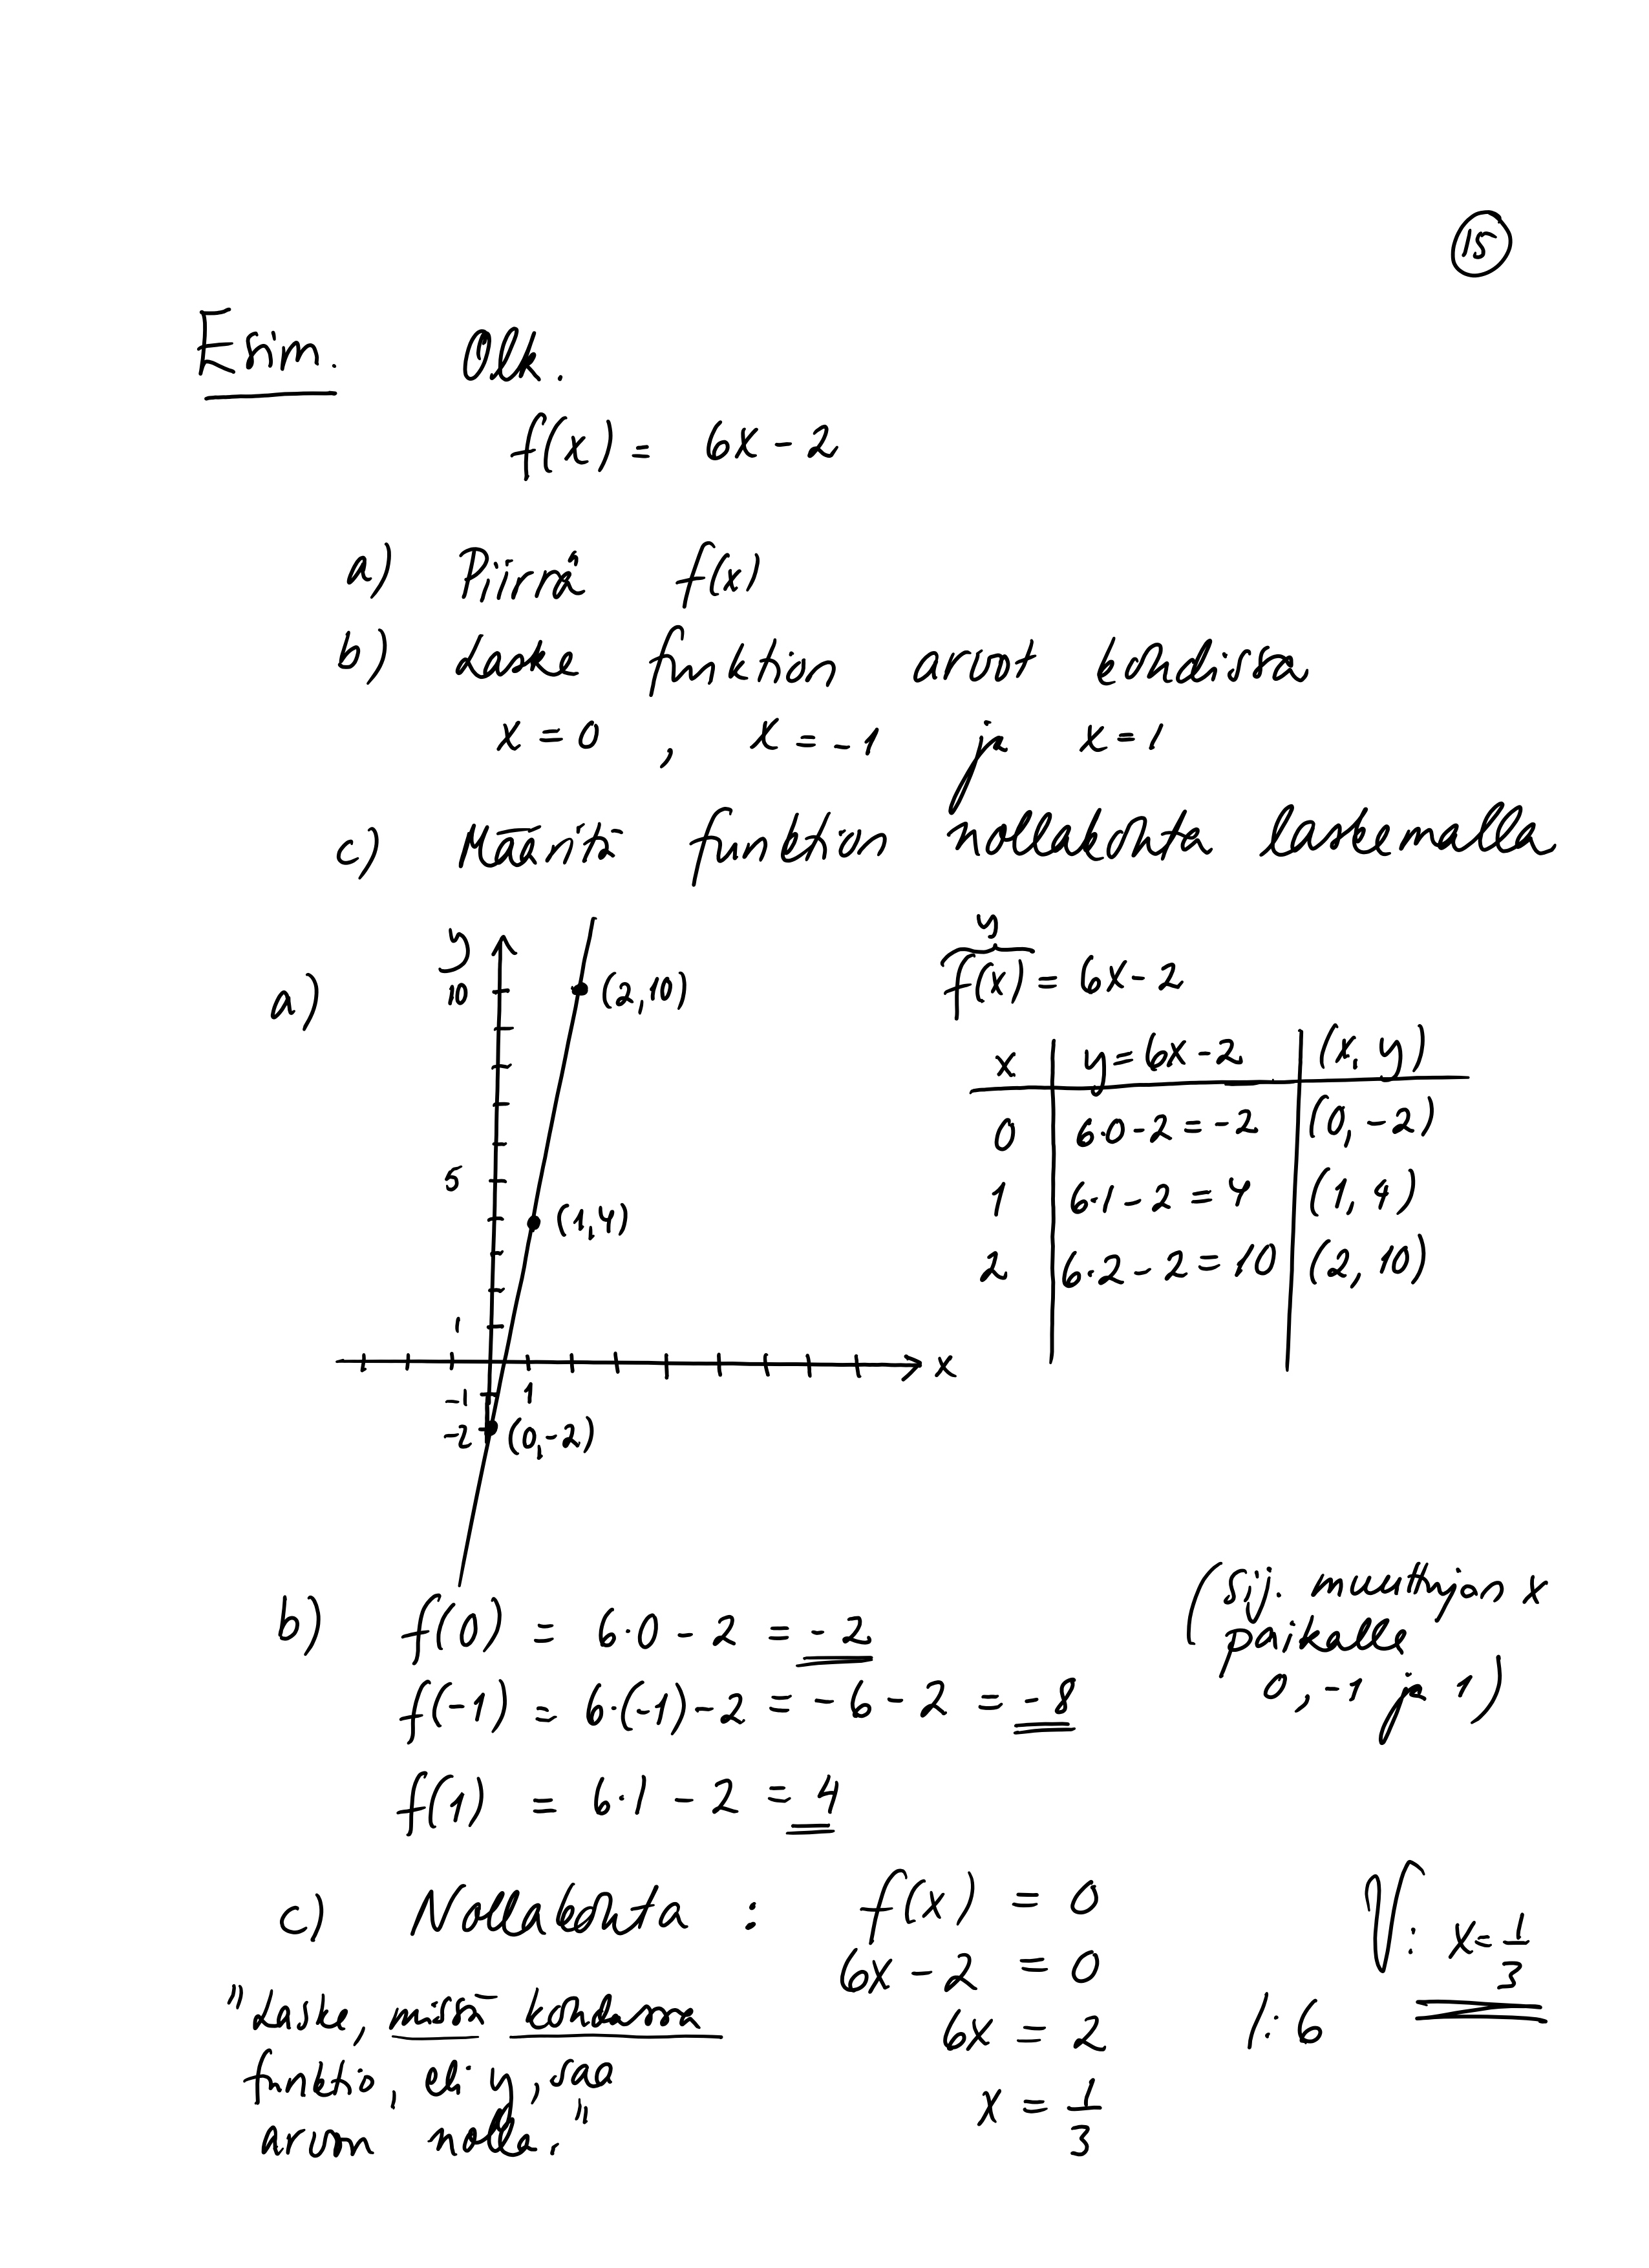 15
Esim. Olk.
f(x) = 6x - 2
a) Piirrä f(x)
b) Laske funktion arvot kohdissa
x = 0 , x = -1 ja x = 1
c) Määritä funktion nollakohta laskemalla
a)
y
10
5
1
-1
-2
1
x
(2,10)
(1,4)
(0,-2)
y
f(x) = 6x - 2
x | y = 6x - 2 | (x, y)
0 | 6·0 - 2 = -2 | (0, -2)
1 | 6·1 - 2 = 4 | (1, 4)
2 | 6·2 - 2 = 10 | (2, 10)
b) f(0) = 6·0 - 2 = -2
f(-1) = 6·(-1) - 2 = -6 - 2 = -8
f(1) = 6·1 - 2 = 4
(Sij. muuttujan x
paikalle
0, -1 ja 1)
c) Nollakohta : f(x) = 0
6x - 2 = 0
6x = 2 |: 6
x = 1/3
V: x = 1/3
"Laske, missä kohdassa
funktio, eli y, saa
arvon nolla."